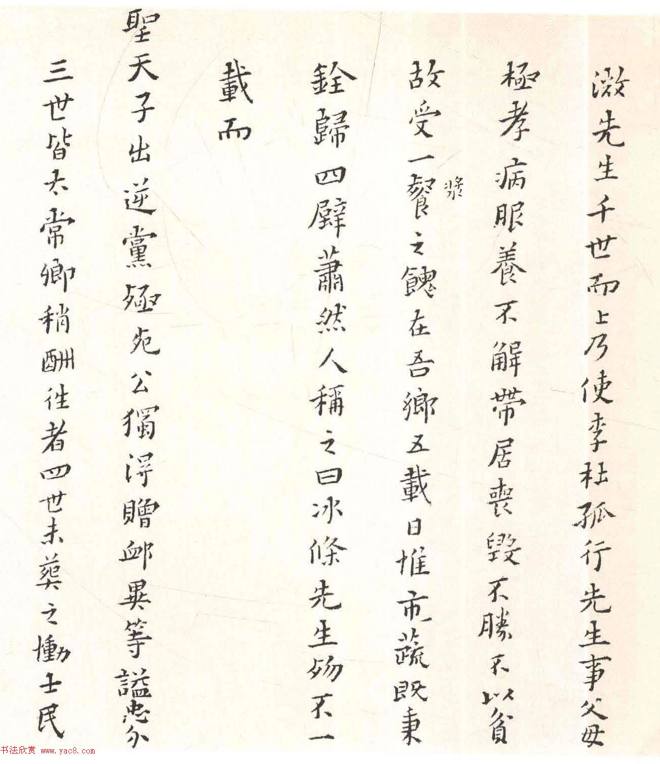 激先生千世而上乃使李杜孤行先生事父母
極孝病眼養不解帶居喪毀不勝不以貧
故受一餐漿之餽在吾鄉五載日惟市蔬既秉
銓歸四壁蕭然人稱之曰冰條先生歿不一
載而
聖天子出逆黨殛死公獨得贈卹異等謚忠介
三世皆太常卿稍酬往者四世未葬之慟士民
书法欣赏 www.yac8.com